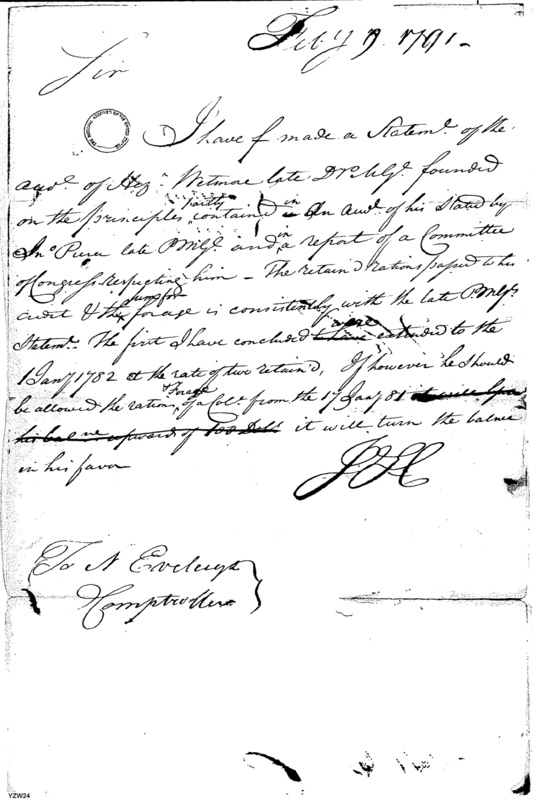 Feby 9 1791-
Sir
I have made a Statemt. of the
Acct. of Hezh. Wetmore late D P M Gl. founded
on the principles partly contained in an Acct. of his Stated by
Jno Pierce late P M Gl. and in a report of a Committee
of Congress respecting him - The retain'd rations passed to his
credit & the sums for forage is consistent with the late P M Gls.
Statemt. The first I have concluded were extended to the
1 Jany 1782 at the rate of two retain'd, If however he should
be allowed the rations & Forage of a Colo. from the 17 Jany 81
his balance upward of 100 Dolls it will turn the balance
in his favor
To N Eveleigh
Comptroller
YZW24